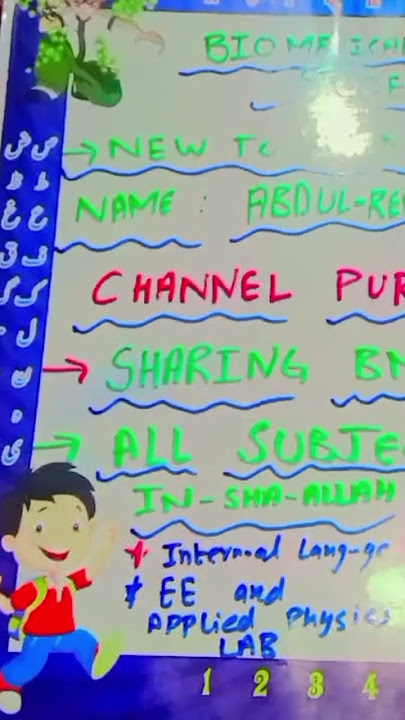 BIOMEDICA
→ NEW TO
NAME : ABDUL-RE
CHANNEL PUR
→ SHARING BM
→ ALL SUBJE
IN-SHA-ALLAH
* Internal Lang-ge
* EE and
Applied Physics
LAB
ص ض
ط ظ
ع غ
ف ق
ک گ
ل
ی
1 2 3 4